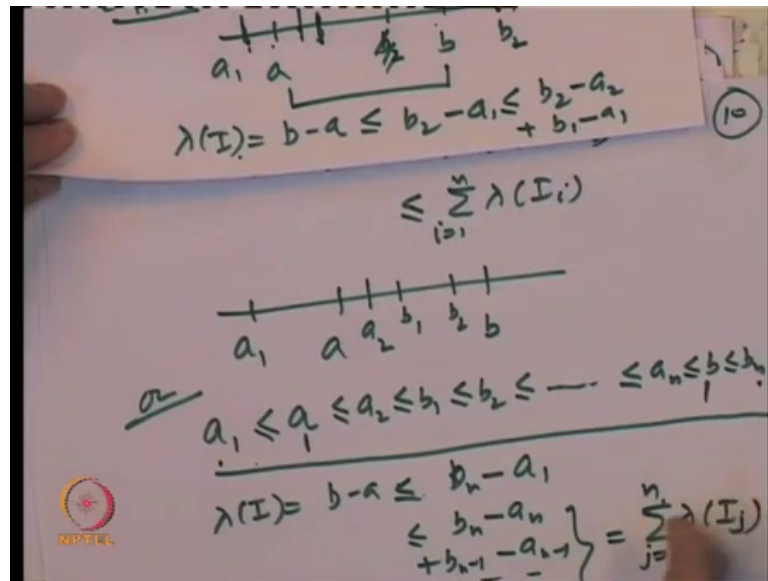 a₁ a b b₂
λ(I) = b-a ≤ b₂-a₁ ≤ b₂-a₂
+ b₁-a₁
10
≤ Σ_{i=1}^{n} λ(I_i)
a₁ a a₂ b₁ b₂ b
or
a₁ ≤ a ≤ a₂ ≤ b₁ ≤ b₂ ≤ ---- ≤ aₙ ≤ b ≤ bₙ
λ(I) = b-a ≤ bₙ-a₁
≤ bₙ-aₙ
+bₙ₋₁-aₙ₋₁ } = Σ_{j=}^{n} λ(I_j)
NPTEL